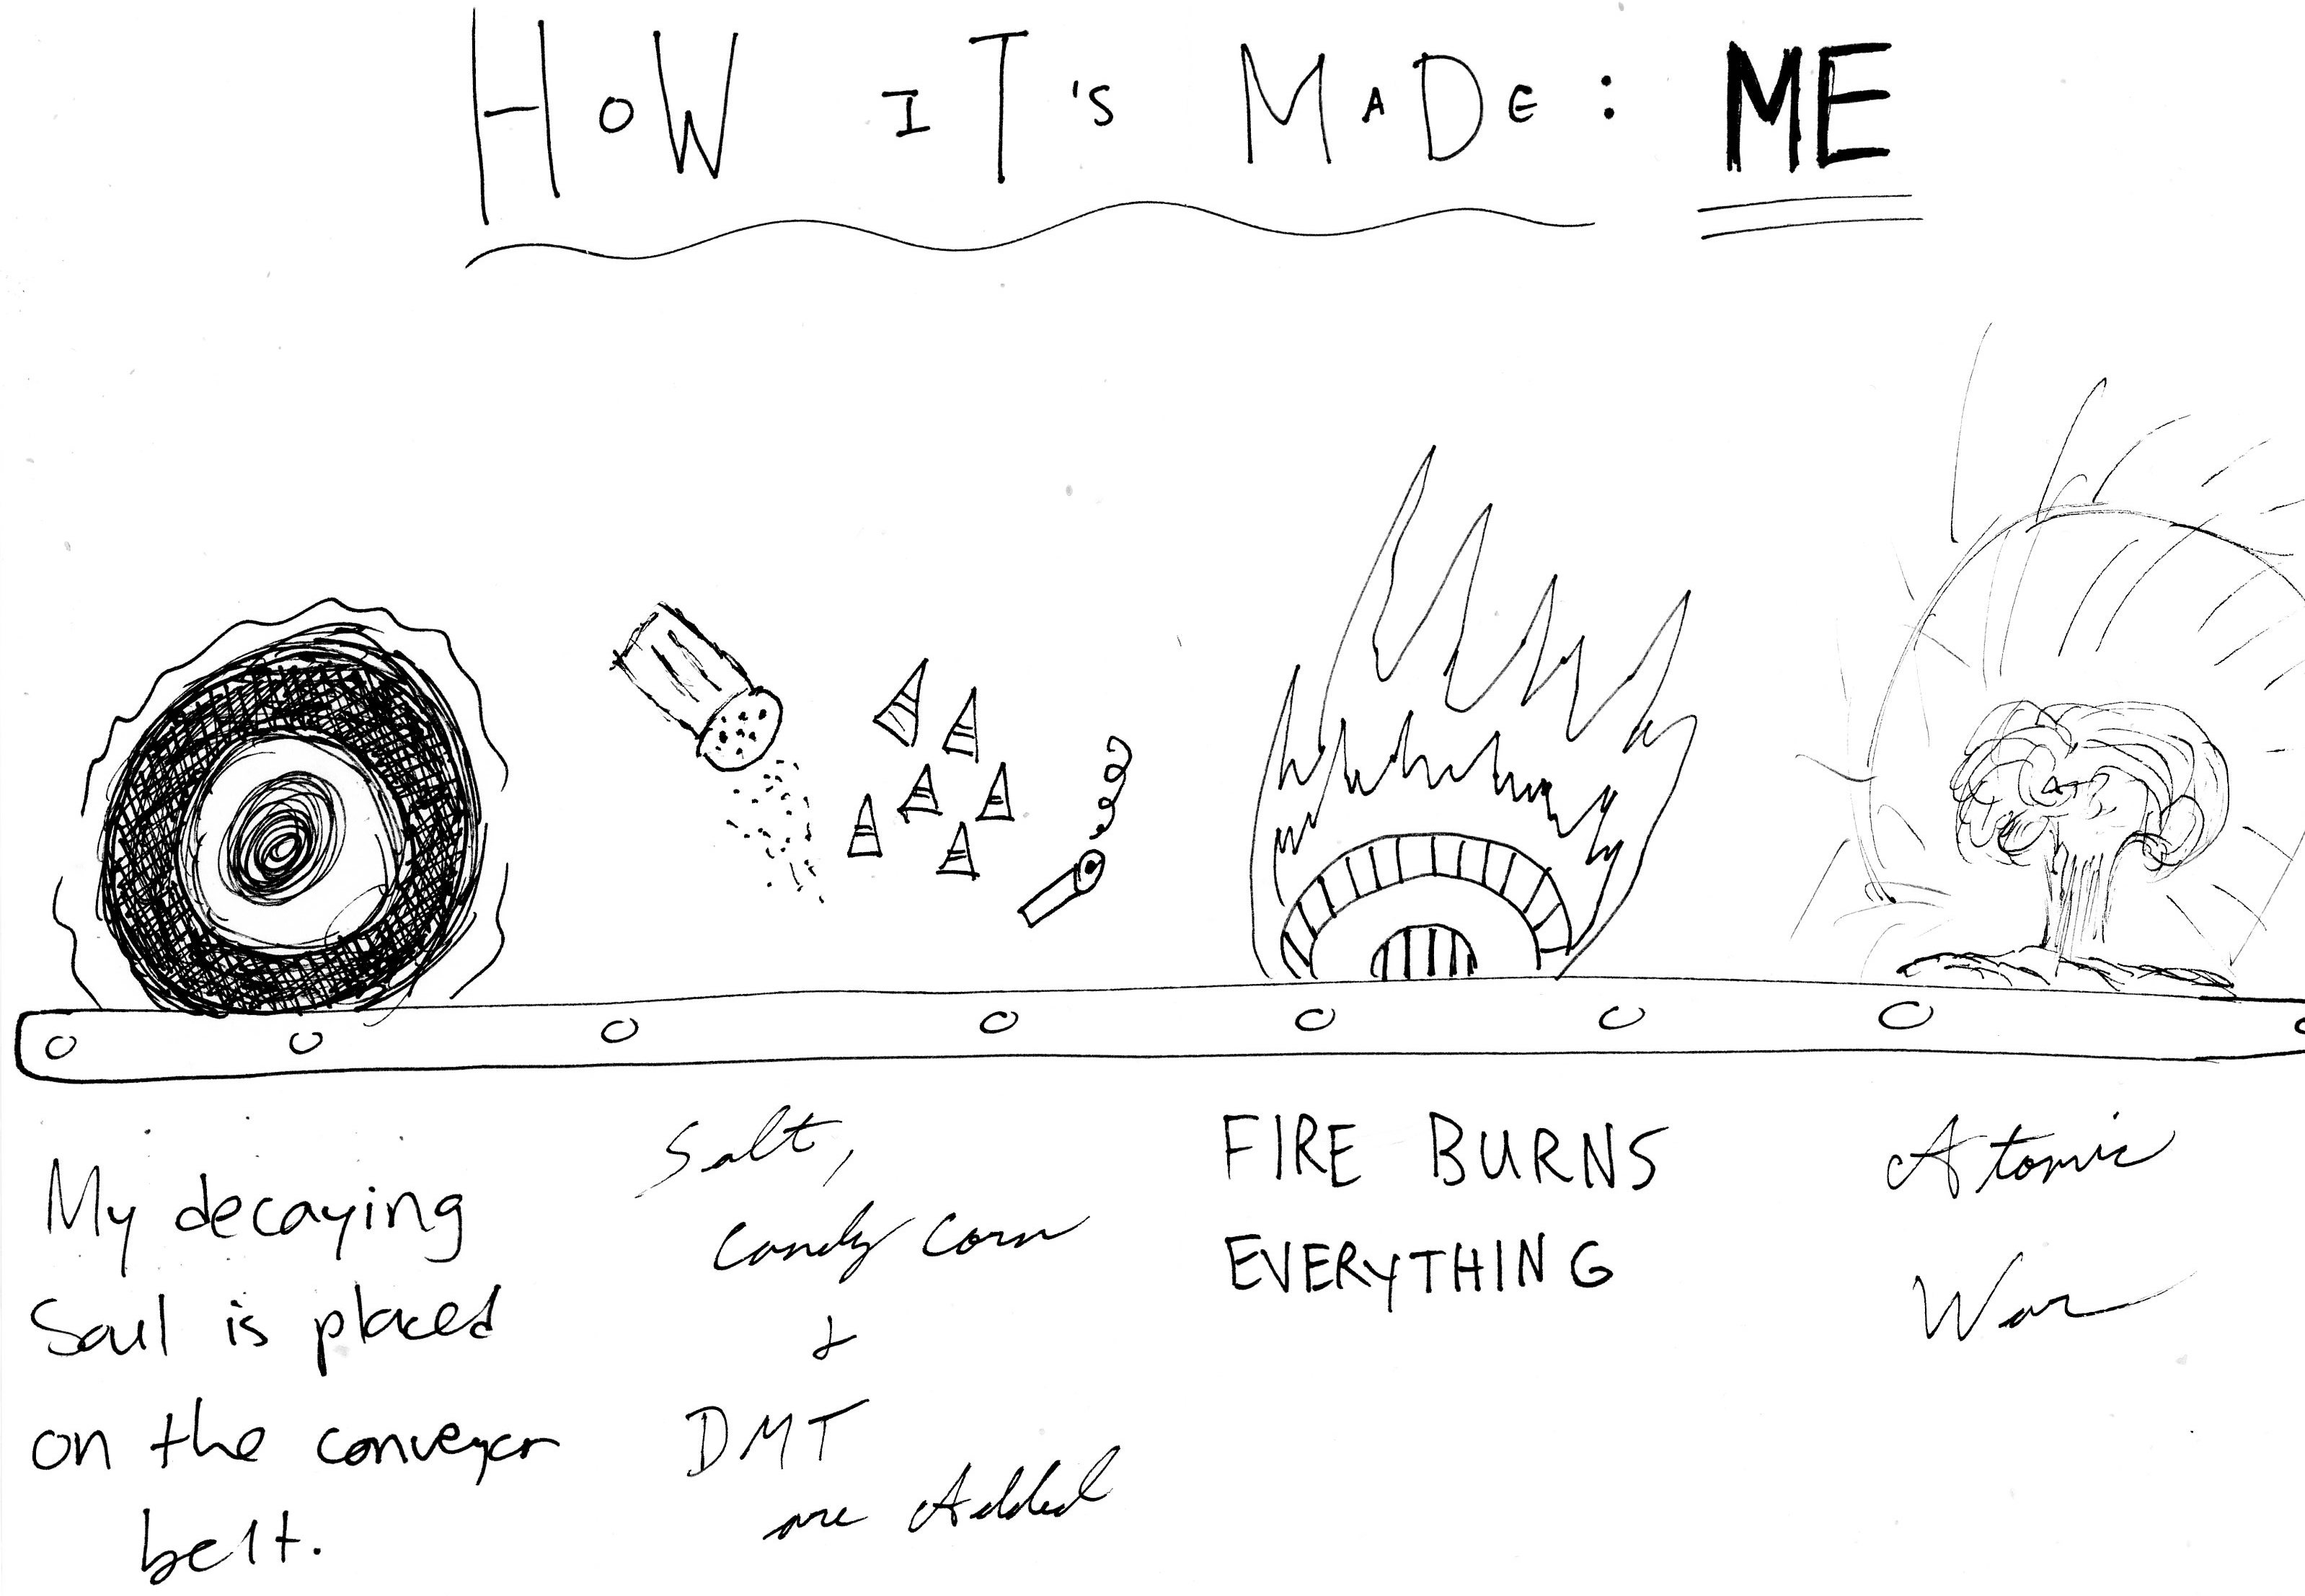 HoW iT's MaDe: ME
My decaying
Soul is placed
on the conveyer
belt.
Salt,
Candy Corn
&
DMT
are Added
FIRE BURNS
EVERYTHING
Atomic
War